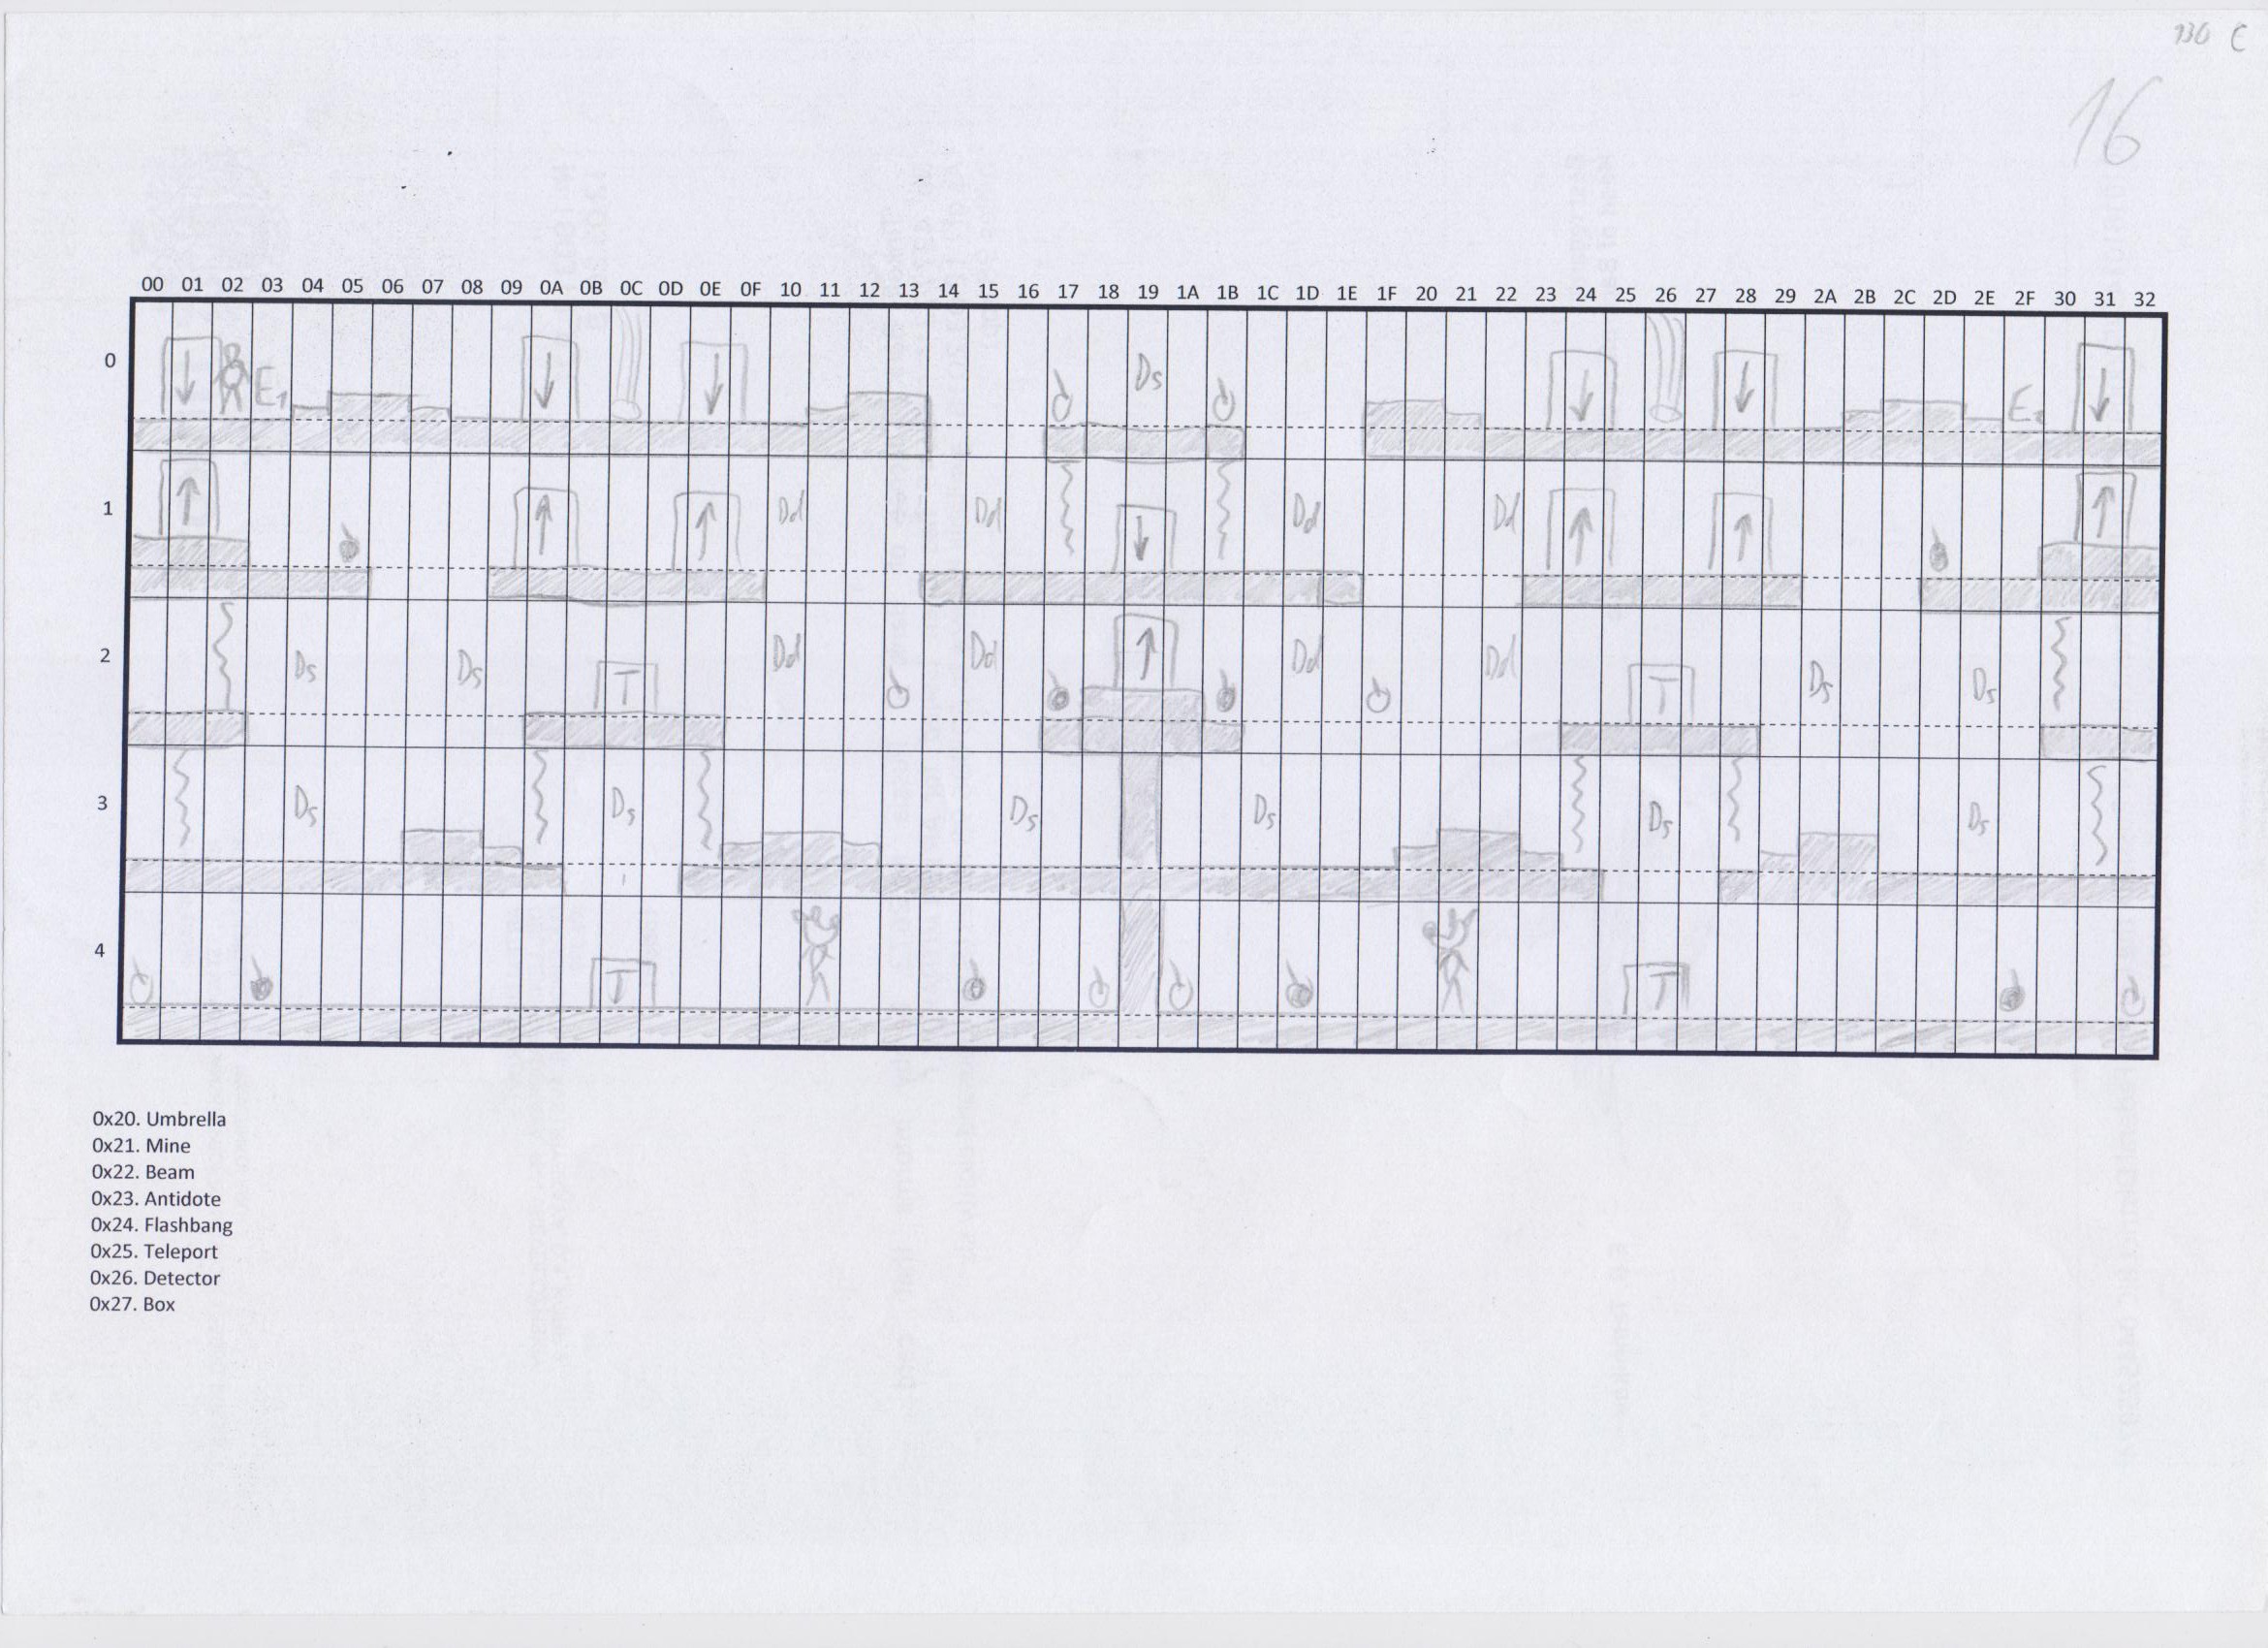 130 C
16
00 01 02 03 04 05 06 07 08 09 0A 0B 0C 0D 0E 0F 10 11 12 13 14 15 16 17 18 19 1A 1B 1C 1D 1E 1F 20 21 22 23 24 25 26 27 28 29 2A 2B 2C 2D 2E 2F 30 31 32
0
E1 Ds E2
1
Dd Dd Dd Dd
2
Ds Ds T Dd Dd Dd Dd T Ds Ds
3
Ds Ds Ds Ds Ds Ds
4
T T
0x20. Umbrella
0x21. Mine
0x22. Beam
0x23. Antidote
0x24. Flashbang
0x25. Teleport
0x26. Detector
0x27. Box